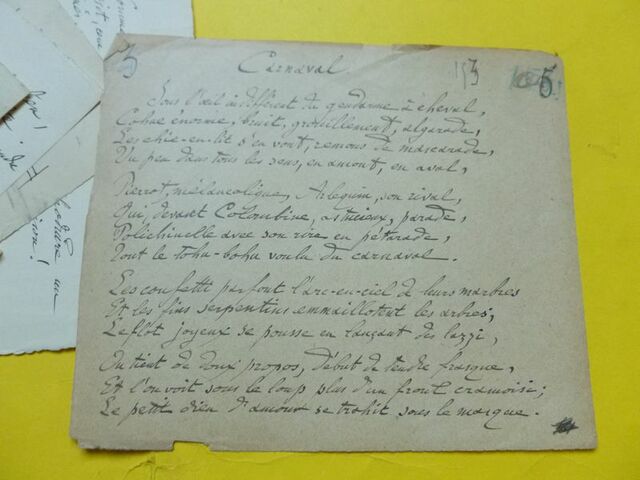 3
Carnaval
153
5
Sous l'œil indifférent du gendarme à cheval,
Cohue énorme, bruit, grouillement, algarade,
Les chie-en-lit s'en vont, remous de mascarade,
Un peu dans tous les sens, en amont, en aval,
Pierrot mélancolique, Arlequin, son rival,
Qui, devant Colombine, astucieux, parade,
Polichinelle avec son rire en pétarade,
Tout le tohu-bohu voulu du carnaval.
Les confetti font l'arc-en-ciel de leurs marbres
Et les fins serpentins emmaillotent les arbres;
Le flot joyeux se pousse en lançant des lazzi,
On tient de doux propos, début de tendre frasque,
Et l'on voit sous le loup plus d'un front cramoisi;
Le petit dieu d'amour se trahit sous le masque.